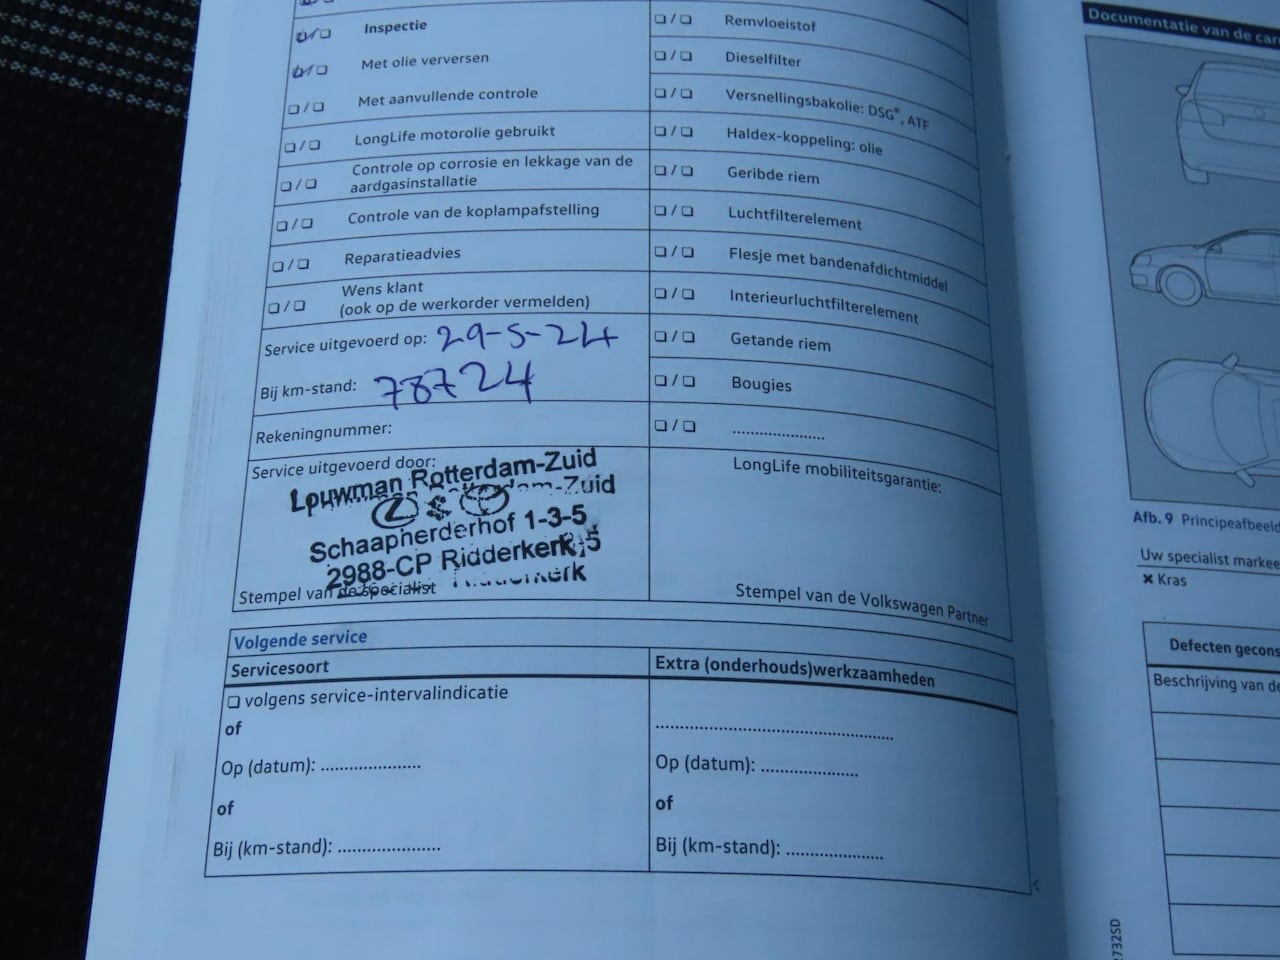 ❏ / ❏ Inspectie
❏ / ❏ Met olie verversen
❏ / ❏ Met aanvullende controle
❏ / ❏ LongLife motorolie gebruikt
❏ / ❏ Controle op corrosie en lekkage van de
aardgasinstallatie
❏ / ❏ Controle van de koplampafstelling
❏ / ❏ Reparatieadvies
❏ / ❏ Wens klant
(ook op de werkorder vermelden)
Service uitgevoerd op: 29-5-24
Bij km-stand: 78724
Rekeningnummer:
Service uitgevoerd door:
Louwman Rotterdam-Zuid
Schaapherderhof 1-3-5
2988-CP Ridderkerk
Stempel van de specialist
❏ / ❏ Remvloeistof
❏ / ❏ Dieselfilter
❏ / ❏ Versnellingsbakolie: DSG®, ATF
❏ / ❏ Haldex-koppeling: olie
❏ / ❏ Geribde riem
❏ / ❏ Luchtfilterelement
❏ / ❏ Flesje met bandenafdichtmiddel
❏ / ❏ Interieurluchtfilterelement
❏ / ❏ Getande riem
❏ / ❏ Bougies
❏ / ❏ .....................
LongLife mobiliteitsgarantie:
Stempel van de Volkswagen Partner
Volgende service
Servicesoort
❏ volgens service-intervalindicatie
of
Op (datum): .....................
of
Bij (km-stand): .....................
Extra (onderhouds)werkzaamheden
..................................................
Op (datum): .....................
of
Bij (km-stand): .....................
Documentatie van de
Afb. 9
Uw specialist
✖ Kras
Defecten
Beschrijving van
732SD